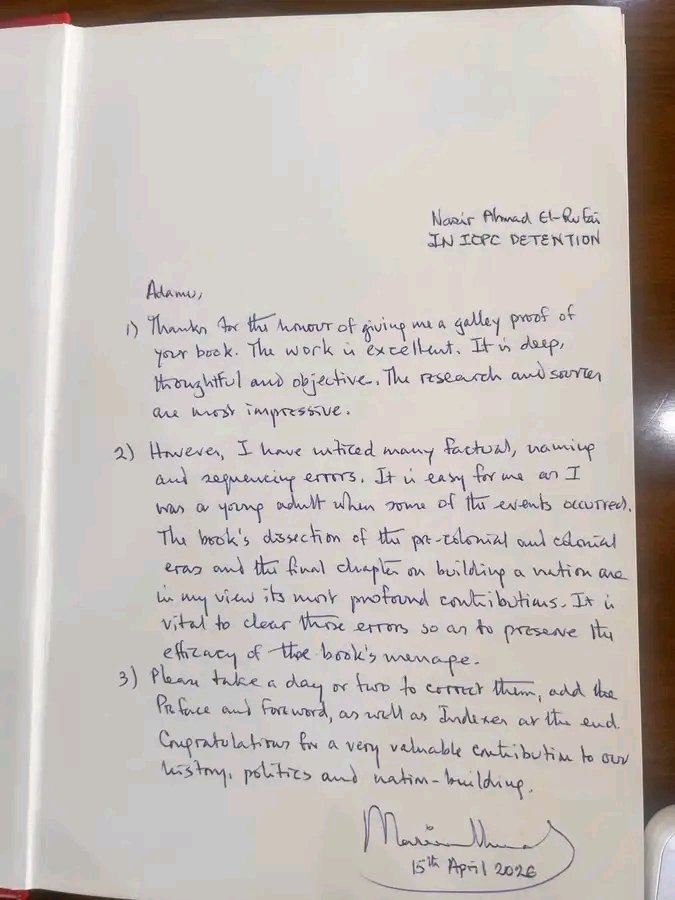 Nasir Ahmad El-Rufai
IN ICPC DETENTION
Adamu,
1) Thanks for the honour of giving me a galley proof of
your book. The work is excellent. It is deep,
thoughtful and objective. The research and sources
are most impressive.
2) However, I have noticed many factual, naming
and sequencing errors. It is easy for me as I
was a young adult when some of the events occurred.
The book's dissection of the pre-colonial and colonial
eras and the final chapter on building a nation are
in my view its most profound contributions. It is
vital to clear those errors so as to preserve the
efficacy of the book's message.
3) Please take a day or two to correct them, add the
Preface and Foreword, as well as Indexes at the end.
Congratulations for a very valuable contribution to our
history, politics and nation-building.
15th April 2026